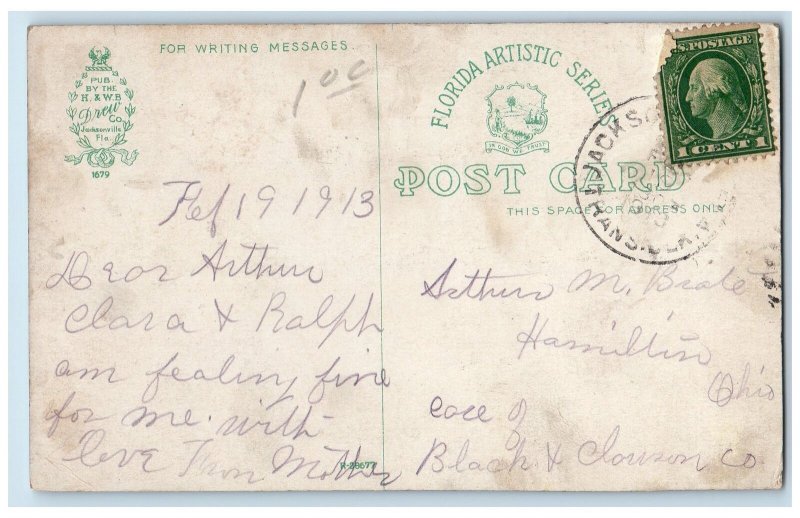 FOR WRITING MESSAGES.
PUB.
BY THE
H. & W. B.
Drew
Co.
Jacksonville
Fla.
1679
10c
FLORIDA ARTISTIC SERIES
IN GOD WE TRUST
POST CARD
THIS SPACE FOR ADDRESS ONLY
U.S. POSTAGE
1 CENT 1
JACKS
TRANS. CLK.
Feb 19 1913
Dear Arthur
Clara & Ralph
am fealing fine
for me. with
love from Mother
R-28677
Arthur M. Beale
Hamilton
Ohio
care of
Black & Clowson Co